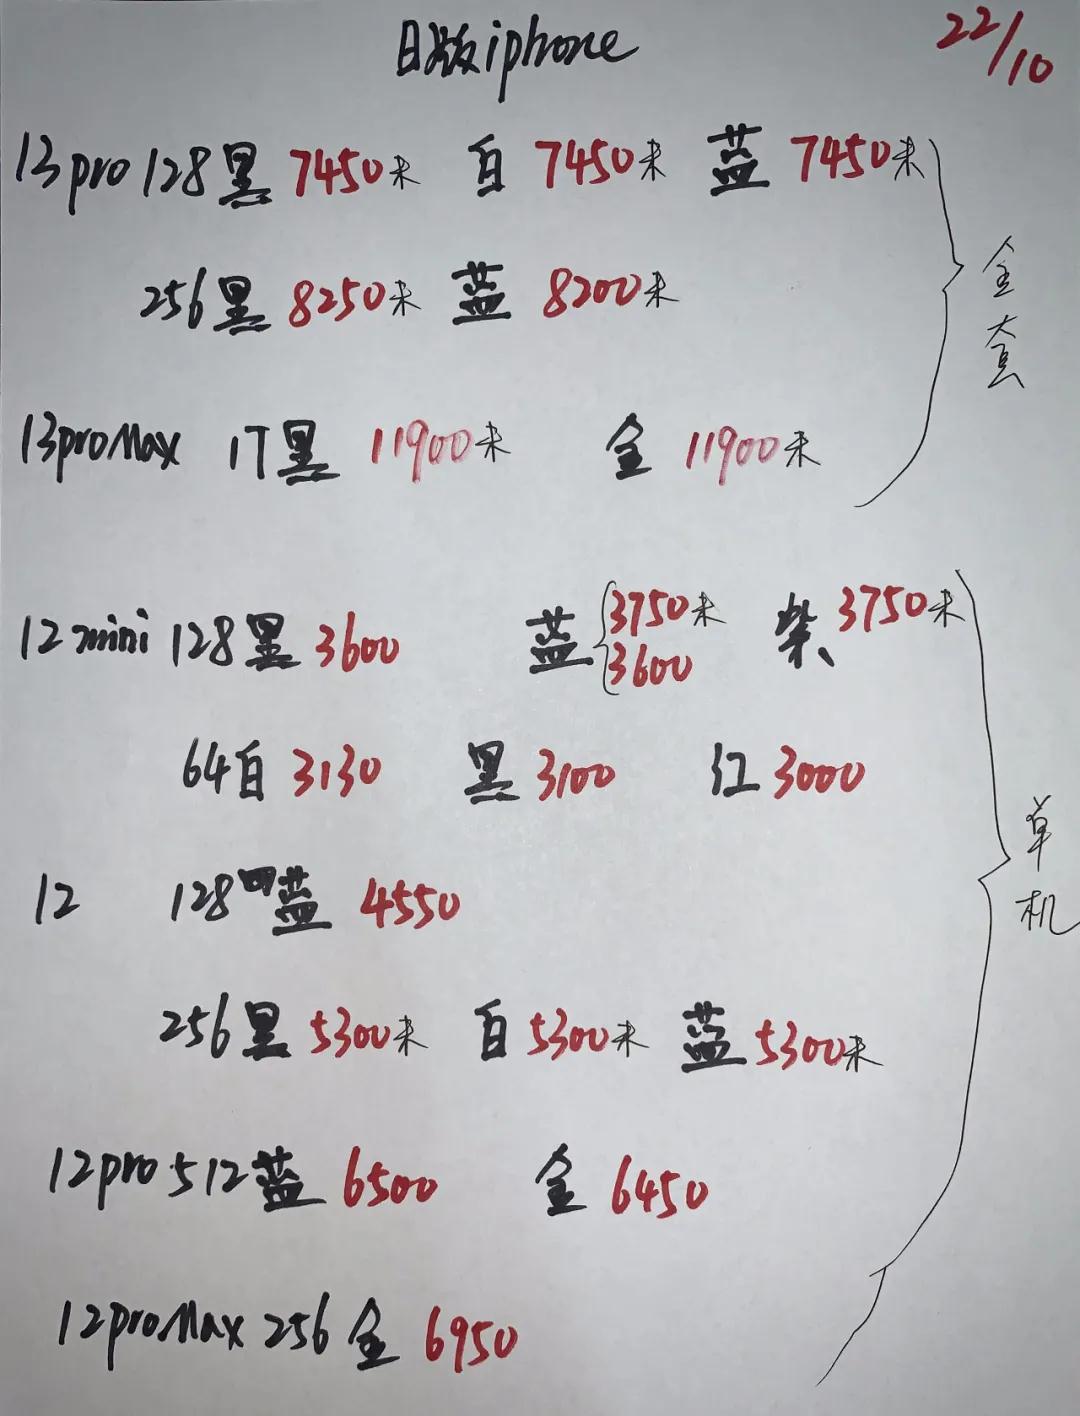 日版iphone 22/10
13pro 128黑 7450未 白 7450未 蓝 7450未
256黑 8250未 蓝 8200未
全套
13proMax 1T黑 11900未 金 11900未
12mini 128黑 3600 蓝 3750未 3600 紫 3750未
64白 3130 黑 3100 红 3000
单机
12 128蓝 4550
256黑 5300未 白 5300未 蓝 5300未
12pro 512蓝 6500 金 6450
12proMax 256金 6950